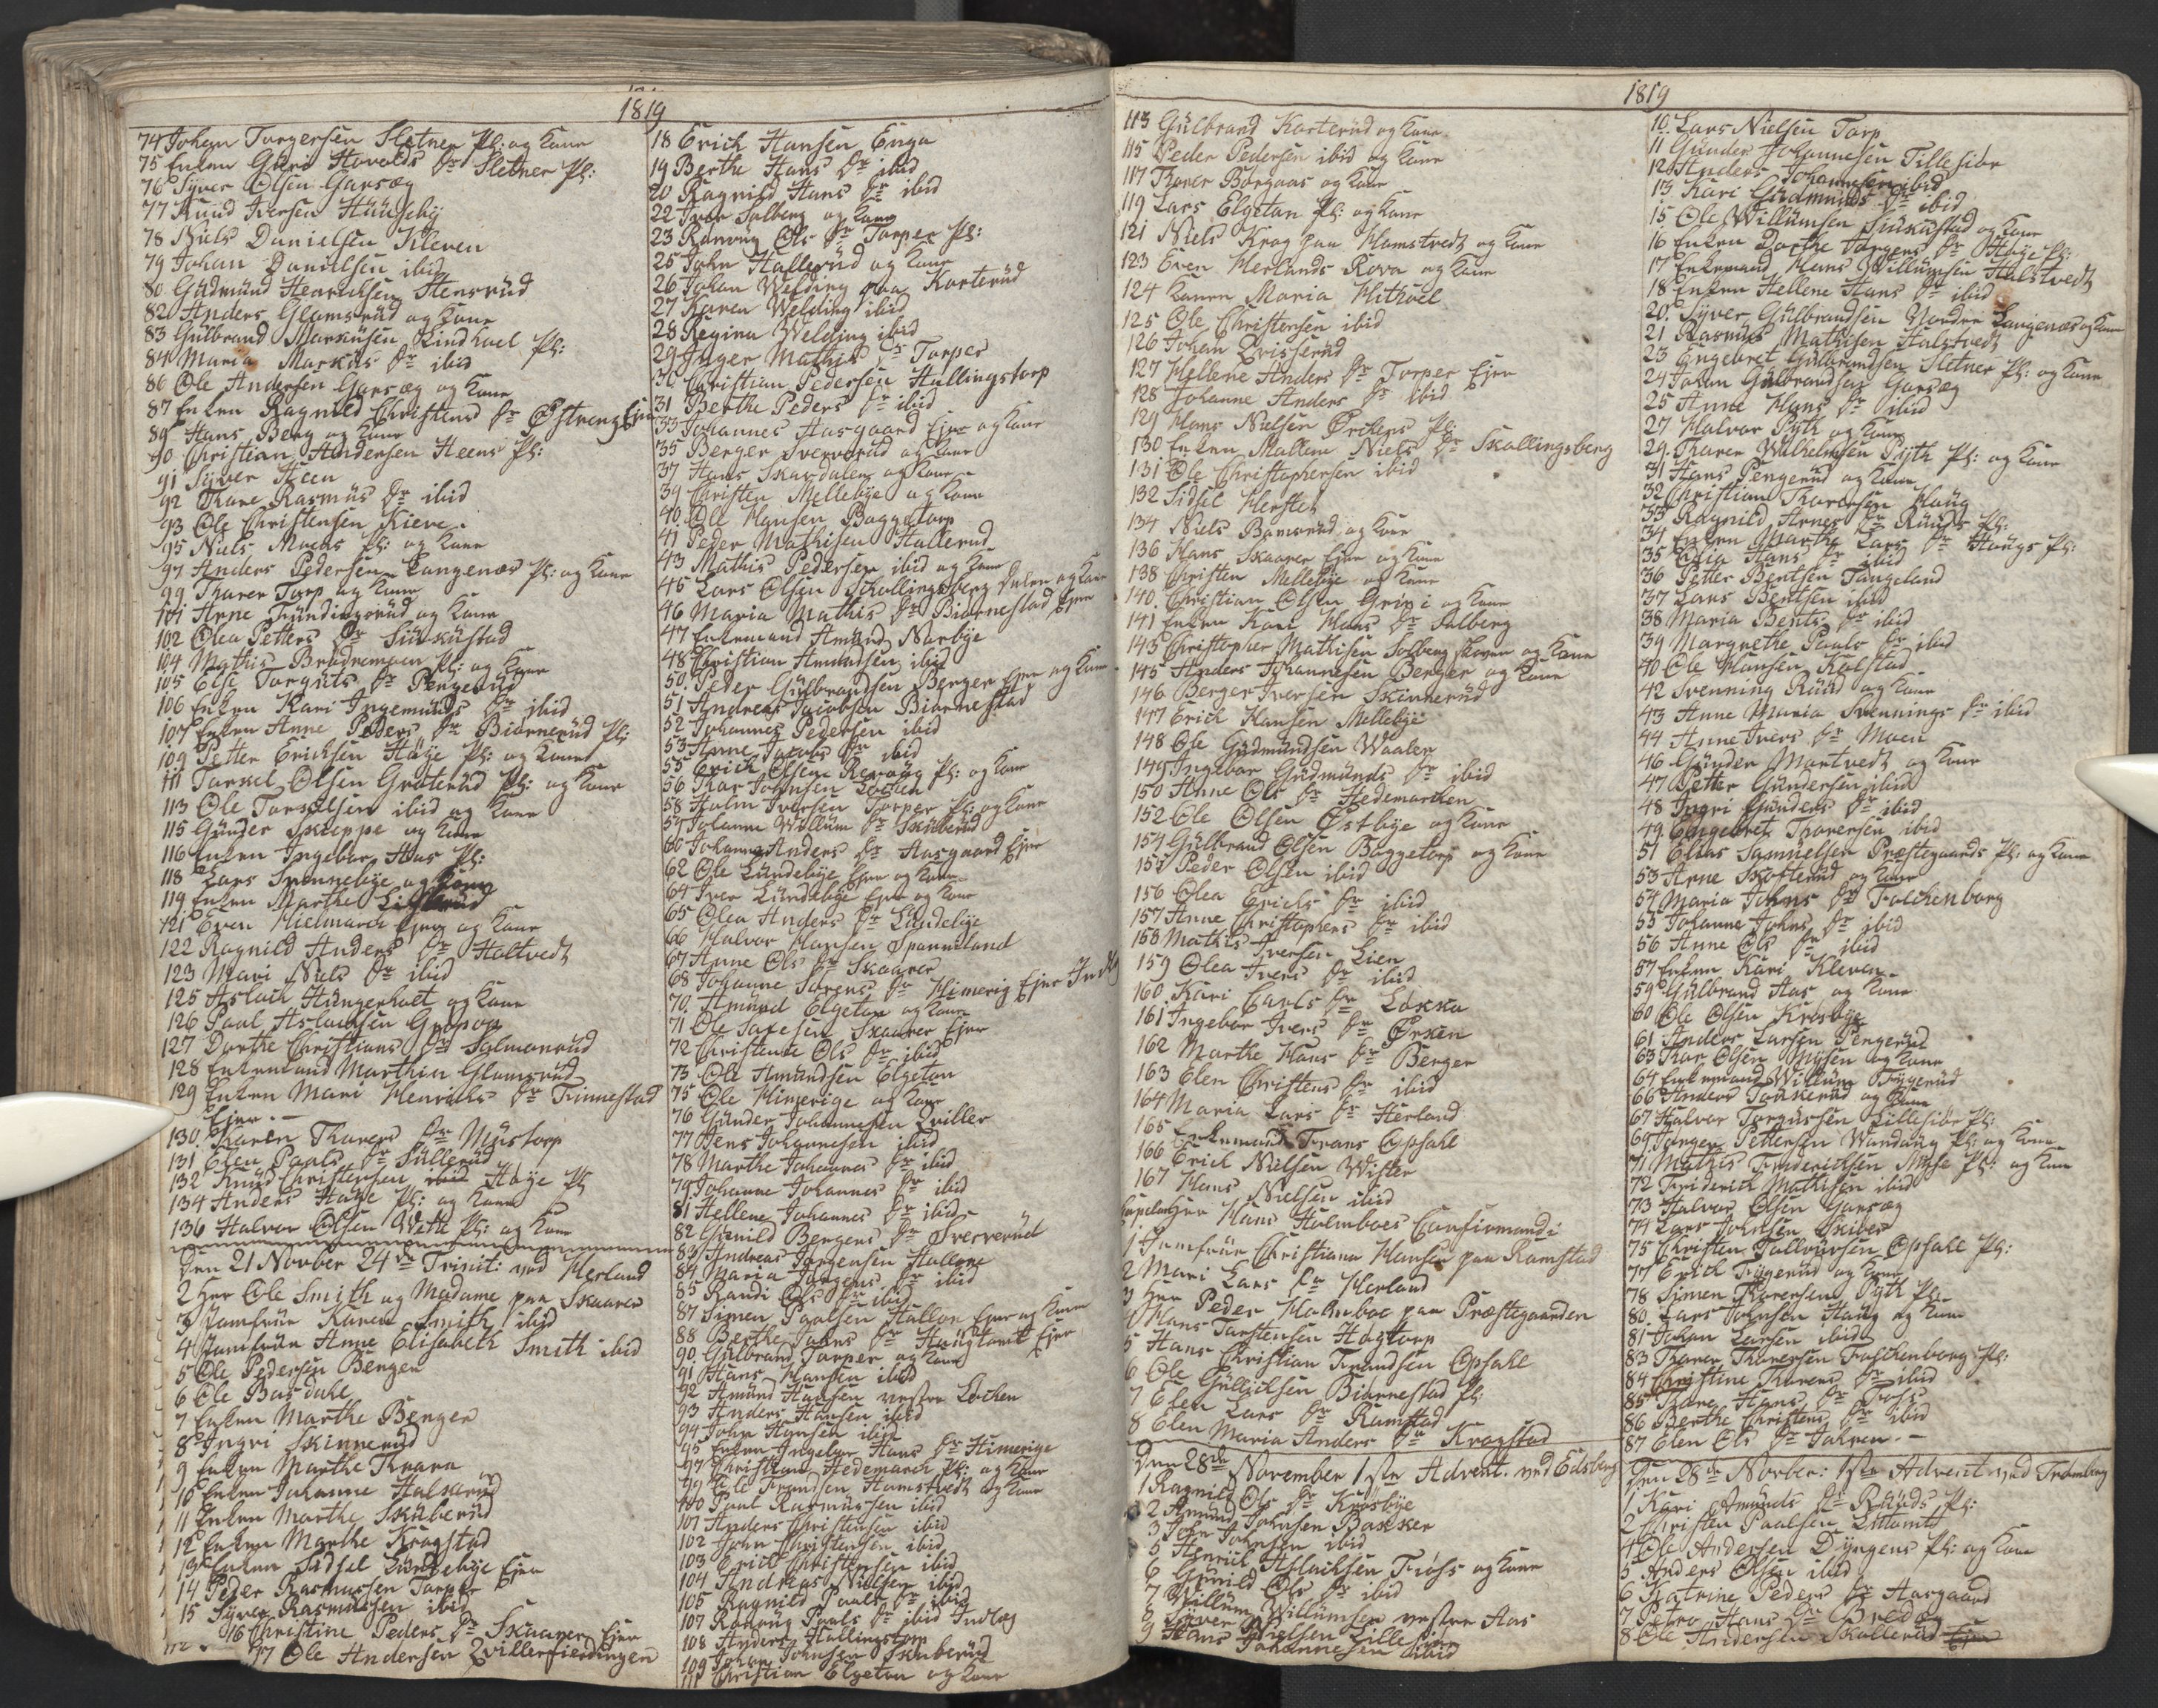 1819
74 Johan Torgersen Sletner Pl: og Kone
75 Enken Guri Havolds Dr Sletner Pl:
76 Syver Olsen Garsæg
77 Knud Iversen Huuseby
78 Niels Danielsen Kleven
79 Johan Danielsen ibid
80 Gudmund Henrichsen Stensrud
82 Anders Glomsrud og Kone
83 Gulbrand Markusen Lindhoel Pl:
84 Maria Markus Dr ibid
86 Ole Andersen Garsæg og Kone
87 Enken Ragnild Christens Dr Østreng Ejer
89 Hans Berg og Kone
90 Christian Andersen Heens Pl:
91 Syver Heen
92 Thore Rasmus Dr ibid
93 Ole Christensen Kiere
95 Niels Moens Pl: og Kone
97 Anders Pedersen Langenæs Pl: og Kone
99 Tharer Torp og Kone
101 Arne Trundingsrud og Kone
102 Olea Petters Dr Siukustad
104 Mathis Brødremoen Pl: og Kone
105 Else Torguts Dr Pengerud
106 Enken Kari Ingemunds Dr ibid
107 Enken Anne Peders Dr Biørnerud Pl:
109 Petter Erichsen Høje Pl: og Kone
111 Torkel Olsen Grøterud Pl: og Kone
113 Ole Torkelsen ibid og Kone
115 Gunder Skieppe og Kone
116 Enken Ingebor Aas Pl:
118 Lars Svennebye og Kone
119 Enken Marthe
121 Even Hielmark Ejer og Kone
122 Ragnild Anders Dr Holtvedt
123 Mari Niels Dr ibid
125 Aslach Hungerholt og Kone
126 Paul Aslachsen Gropa
127 Dorthe Christians Dr Salmonrud
128 Enkemand Marthin Glomsrud
129 Enken Mari Henrichs Dr Finnestad
Ejer.
130. Karen Thorers Dr Nystorp
131 Elen Pauls Dr Sullerud
132 Knud Christensen Høye Pl
134 Anders Høye Pl: og Kone
136 Halvor Olsen With Pl: og Kone
Den 21 Novber 24de Trinit: ved Herland
2 Herr Ole Smith og Madame paa Skaarer
3 Jomfrue Karen Smith ibid
4 Jomfrue Anne Elisabeth Smith ibid
5 Ole Pedersen Berger
6 Ole Basdahl
7 Enken Marthe Berger
8 Ingri Skinnerud
9 Enken Marthe Krara
10 Enken Johanne Halserud
11 Enken Marthe Skuberud
12 Enken Marthe Kragstad
13 Enken Sidsel Lundebye Ejer
14 Peder Rasmussen Torper
15 Syver Rasmussen ibid
16 Christine Peders Dr Skaarer Ejer
17 Ole Andersen Qvillerfierdingen
18 Erich Hansen Enga
19 Berthe Hans Dr ibid
20 Ragnild Hans Dr ibid
22 Iver Solberg og Kone
23 Rønnoug Ols Dr Torper Pl:
25 John Hallerud og Kone
26 Johan Welding paa Karterud
27 Karen Welding ibid
28 Regina Welding ibid
29 Inger Mathis Dr Torper
30 Christian Pedersen Hallingstorp
31 Berthe Peders Dr ibid
33 Johannes Aasgaard Ejer og Kone
35 Berger Sververud og Kone
37 Hans Skardalen og Kone
39 Christen Mellebye og Kone
40 Ole Hansen Baggetorp
41 Peder Mathisen Hallerud
43 Mathis Pedersen ibid og Kone
45 Lars Olsen Skallingsberg Inder og Kone
46 Maria Mathis Dr Biørnestad Ejer
47 Enkemand Amund Norbye
48 Christian Amundsen ibid
50. Peder Gulbrandsen Berger Ejer og Kone
51 Andreas Jacobsen Biørnestad
52 Johannes Pedersen ibid
53 Anne Jacobs Dr ibid
55 Erich Olsen Revoug Pl: og Kone
56 Roar Johnsen Lochen
58 Holm Iversen Torper Pl: og Kone
59 Johanne Willum Dr Skuberud
60 Johannes Anders Dr Aasgaard Ejer
62 Ole Lundebye Ejer og Kone
64 Iver Lundebye Ejer og Kone
65 Olea Anders Dr Lundebye
66 Halvor Hansen Spannelund
67 Anne Ols Dr Skaarer
68 Johanne Sørens Dr Himerig Ejer
70. Amund Elgeton og Kone
71 Ole Saxesen Skaarer Ejer
72 Christense Ols Dr ibid
73 Ole Amundsen Elgeton
75 Ole Himerige og Kone
76 Gunder Johannesen Qviller
77 Jens Johannesen ibid
78 Marthe Johannes Dr ibid
79 Johanne Johannes Dr ibid
81 Hellene Johannes Dr ibid
82 Gunild Bergers Dr Sververud
83 Andreas Jørgensen Hallone
84 Maria Jørgens Dr ibid
85 Randi Ols Dr ibid
87 Simen Paalsen Hallon Ejer og Kone
88 Berthe Johns Dr Haugtomt Ejer
90 Gulbrand Torper og Kone
91 Hans Hansen ibid
92 Amund Hansen vestre Lochen
93 Anders Hansen ibid
94 John Hansen ibid
95 Enken Ingebor Hans Dr Himerige
97 Christian Hedemarck Pl: og Kone
99 Ole Frandsen Hamstvedt og Kone
100 Poul Rasmussen ibid
101 Anders Christensen ibid
102 John Christensen ibid
103 Erich Christensen ibid
104 Andreas Nielsen ibid
105 Ragnild Pauls Dr ibid
107 Rønoug Pauls Dr ibid Indlæg
108 Anders Hallingstorp
109 Johan Johnsen Skuberud
111 Christian Elgeton og Kone
1819
113 Gulbrand Karterud og Kone
115 Peder Pedersen ibid og Kone
117 Thorer Borgaas og Kone
119 Lars Elgeton Pl: og Kone
121 Niels Krog paa Hamstvedt og Kone
123 Even Herlands Rova og Kone
124 Karen Maria Mithoel
125 Ole Christensen ibid
126 Johan Qvisserud
127 Hellene Anders Dr Torper Ejer
128 Johanne Anders Dr ibid
129 Hans Nielsen Ørckens Pl:
130 Enken Mallene Niels Dr Skallingsberg
131 Ole Christophersen ibid
132 Sidsel Herstet
134 Niels Bamerud og Kone
136 Hans Skaarer Ejer og Kone
138 Christen Mellebye og Kone
140. Christian Olsen Gripi og Kone
141 Enken Kari Hans Dr Solberg
143 Christopher Mathisen Solberg Skoven og Kone
145 Anders Johannesen Berger og Kone
146 Berger Iversen Skinnerud
147 Erich Hansen Mellebye
148 Ole Gudmundsen Waaler
149 Ingebor Gudmunds Dr ibid
150 Anne Ols Dr Hedemarchen
152 Ole Olsen Østbye og Kone
154 Gulbrand Olsen Baggetorp og Kone
155 Peder Olsen ibid
156 Olea Erichs Dr ibid
157 Anne Christophers Dr ibid
158 Mathis Iversen Lien
159 Olea Ivers Dr ibid
160. Kari Carls Dr Løkka
161 Ingebor Ivers Dr Ørken
162 Marthe Hans Dr Berger
163 Elen Christens Dr ibid
164 Maria Lars Dr Herland
165 Enkemand Frans Opsahl
166 Erich Nielsen Wister
167 Hans Nielsen ibid
Hans Holmboes Confirmandi
1 Jomfrue Christiana Hansen paa Ramstad
2 Mari Lars Dr Herland
3 Herr Peder Holmboe paa Præstegaarden
4 Hans Torstensen Hagtorp
5 Hans Christian Frandsen Opsahl
6 Ole Gullichsen Biørnestad Pl:
7 Elen Lars Dr Ramstad
8 Elen Maria Anders Dr Kragstad
Den 28de November 1ste Advent. ved Eidsberg
1 Ragnild Ols Dr Krosbye
2 Amund Johnsen Bakker
3 John Johnsen ibid
5 Henrich Aslachsen Fross og Kone
6 Gunild Ols Dr ibid
7 Willum Willumsen vestre Aas
8 Syver Nielsen Lillesiør
9 Hans Johannesen ibid
10. Lars Nielsen Torp
11 Gunder Johannesen Tillesiør
12 Anders Johannesen ibid
13 Kari Gudmunds Dr ibid
15 Ole Willumsen Siukustad og Kone
16 Enken Dorthe Torgers Dr Høye Pl:
17 Enkemand Hans Willumsen Holstvedt
18 Enken Hellene Hans Dr ibid
20. Syver Gulbrandsen Nordre Langenæs og Kone
21 Rasmus Mathisen Holstvedt
23 Engebret Gulbrandsen Sletner Pl: og Kone
24 Johan Gulbrandsen Garsæg
25 Anne Hans Dr ibid
27 Halvor Pyth og Kone
29. Tharer Wilhelmsen Pyth Pl: og Kone
31 Hans Pengerud og Kone
32 Christian Thoresen Haug
33 Ragnild Arnes Dr Ruuds Pl:
34 Enken Marthe Lars Dr Haugs Pl:
35 Olia Hans Dr ibid
36 Petter Bentsen Tangeland
37 Lars Bentsen ibid
38 Maria Bents Dr ibid
39 Margrethe Pauls Dr ibid
40 Ole Hansen Kolstad
42 Svenning Ruud og Kone
43 Anne Maria Svennings Dr ibid
44 Anne Ivers Dr Moen
46 Gunder Mortvedt og Kone
47 Petter Gundersen ibid
48 Ingri Gunders Dr ibid
49. Engebret Thoresen ibid
51 Elias Samuelsen Præstegaards Pl: og Kone
53 Arne Skofterud og Kone
54 Maria Johns Dr Falchenborg
55 Johanne Johns Dr ibid
56 Anne Ols Dr ibid
57 Enken Kari Kleven
59 Gulbrand Aas og Kone
60 Ole Olsen Krosbye
61 Anders Larsen Pengerud
63 Thor Olsen Mysen og Kone
64 Enkemand Willum Trygerud
66 Anders Torkerud og Kone
67 Halvor Torgussen Lillesiør Pl:
69. Jørgen Pettersen Wandaug Pl: og Kone
71 Mathis Friderichsen Myse Pl: og Kone
72 Friderich Mathisen ibid
73 Halvor Olsen Garsæg
74 Lars Johnsen Skiber
75 Christen Tallevsen Opsahl Pl:
77 Erich Trygerud og Kone
78 Simen Thoresen Pyth Pl:
80. Lars Johnsen Haug og Kone
81 Johan Larsen ibid
83 Tharer Tharersen Falchenborg Pl:
84 Christine Tharers Dr ibid
85 Thore Hans Dr Fross
86 Berthe Christens Dr ibid
87 Elen Ols Dr Jahren
Den 28de Novber: 1ste Advent ved Trømborg
1 Kari Amunds Dr Ruuds Pl:
2 Christen Paalsen Lutomt
4 Ole Andersen Dyngens Pl: og Kone
5 Anders Olsen ibid
6 Katrine Peders Dr Aasgaard
7 Petro Hans Dr Breda
8 Ole Andersen Skallerud Ejer